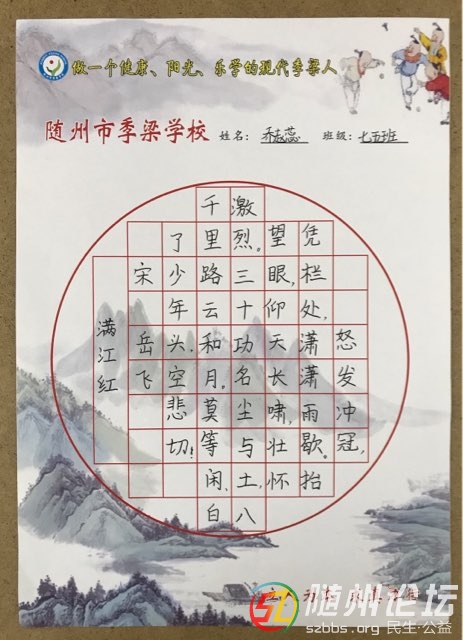 做一个健康、阳光、乐学的现代季梁人
随州市季梁学校 姓名：乔 蕊 班级：七五班
怒发冲冠，
凭栏处，潇潇雨歇。抬
望眼，仰天长啸，壮怀
激烈。三十功名尘与土，八
千里路云和月。莫等闲，白
了少年头，空悲切！
宋 岳飞
满江红
随州论坛
szbbs.org 民生·公益